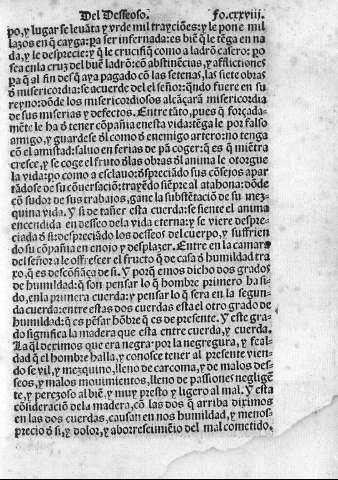 Del Desseoso. Fo.cxxviij.
po, y lugar se leuãta y vrde mil trayciões: y le pone mil
lazos en q̃ cayga: pa ser infernada: es biẽ q̃ le tẽga en na
da, y le desprecie: y q̃ le crucifiq̃ como a ladrõ casero: po
sea en la cruz del buẽ ladrõ: cõ abstinẽcias, y afflictiones
pa q̃ al fin des q̃ aya pagado cõ las setenas, las siete obras
ð misericordia: se acuerde del el señor: q̃ndo fuere en su
reyno: dõde los misericordiosos alcãçarã misericordia
de sus miserias y defectos. Entre tãto, pues q̃ forçada-
mẽte le ha ð tener cõpañia en esta vida: tẽga le por falso
amigo, y guardese ðl como ð enemigo artero: no tenga
cõ el amistad: saluo en ferias de pã coger: q̃ es q̃ miẽtra
cresce, y se coge el fruto ðlas obras ðl anima le otorgue
la vida: po como a esclauo: ðspreciãdo sus cõsejos apar
tãdose de su cõuersaciõ: trayẽdo siẽpre al atahona: dõde
cõ sudor de sus trabajos, gane la substẽtaciõ de su mez-
quina vida. Y si de tañer esta cuerda: se siente el anima
encendida en desseo dela vida eterna: y se viere despre-
ciada ð si: despreciãdo los desseos del cuerpo, y suffrien
do su cõpañia en enojo y desplazer. Entre en la camara
del señor a le offrescer el fructo q̃ de casa ð humildad tra
xo, q̃ es descõfiãça de si. Y porq̃ emos dicho dos grados
de humildad: q̃ son pensar lo q̃ hombre primero ha si-
do, en la primera cuerda: y pensar lo q̃ sera en la segun-
da cuerda: entre estas dos cuerdas esta el otro grado de
humildad: q̃ es pẽsar hõbre q̃ es de presente. Y este gra-
do significa la madera que esta entre cuerda, y cuerda.
La q̃l dezimos que era negra: por la negregura, y feal-
dad q̃ el hombre halla, y conosce tener al presente vien-
do se vil, y mezquino, lleno de carcoma, y de malos des-
seos, y malos mouimientos, lleno de passiones negligẽ
te, y perezoso al biẽ, y muy presto y ligero al mal. Y esta
cõsideraciõ dela madera, cõ las dos q̃ arriba diximos
en las dos cuerdas, causan en nos humildad, y menos-
precio ð si, y dolor, y aborrescimiẽto del mal cometido.